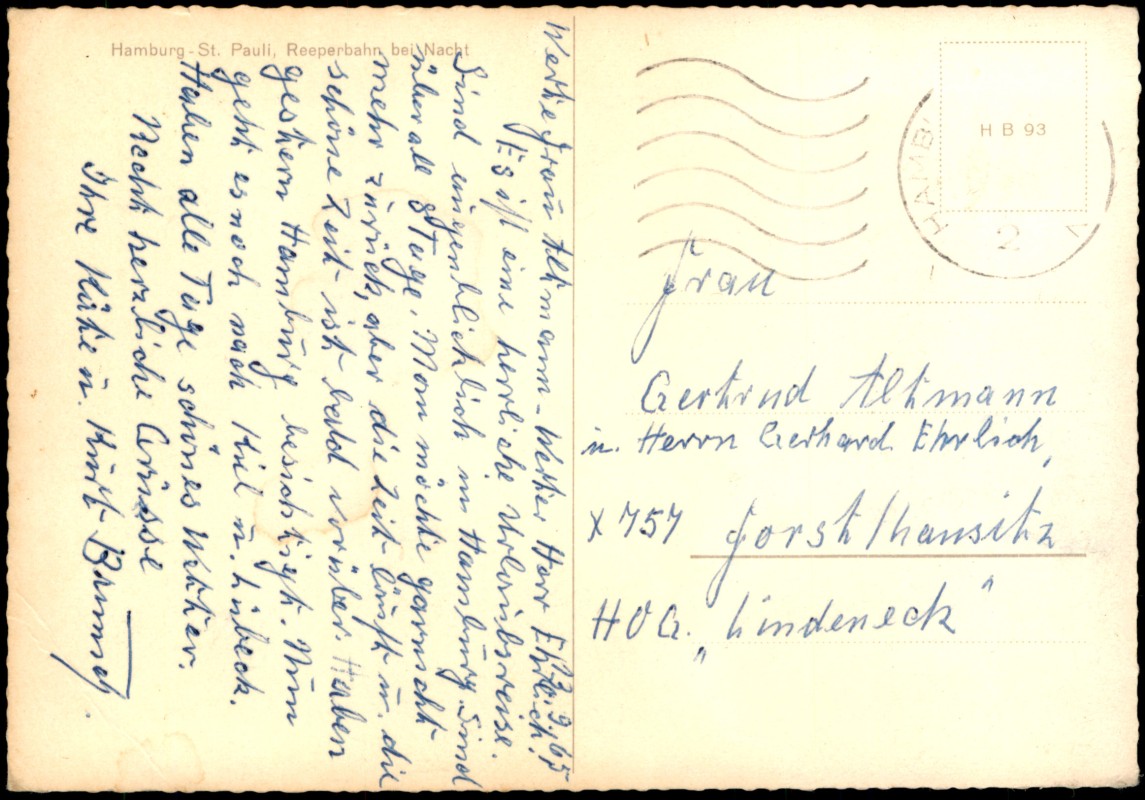 Hamburg - St. Pauli, Reeperbahn bei Nacht
20.9.65
Werte Frau Altmann - Werter Herr Ehrlich!
Es ist eine herrliche Urlaubsreise.
Sind augenblicklich in Hamburg. Sind
über alle 8 Tage. Man möchte garnicht
mehr zurück, aber die Zeit läuft u. die
schöne Zeit ist bald vorüber. Haben
gestern Hamburg besichtigt. Nun
geht es noch nach Kiel u. Lübeck.
Haben alle Tage schönes Wetter.
Recht herzliche Grüsse
Ihre Käte u. Kurt
H B 93
HAMB
2
Frau
Gertrud Altmann
u. Herrn Gerhard Ehrlich,
X 757 Forst/Lausitz
HOG. „Lindeneck"